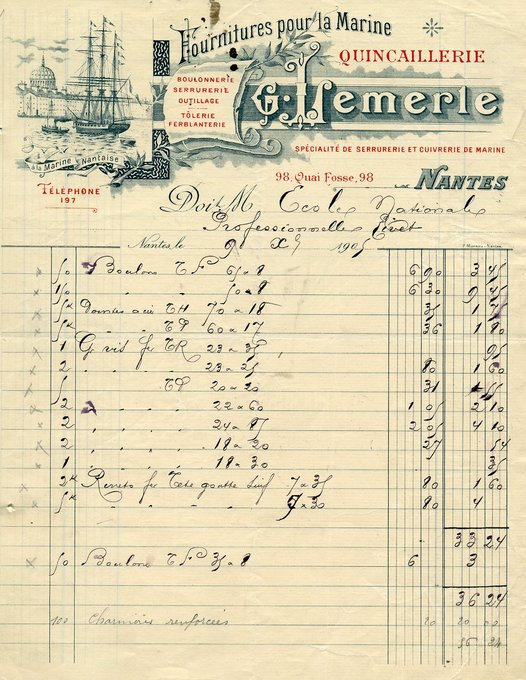 Fournitures pour la Marine
QUINCAILLERIE
BOULONNERIE
SERRURERIE
OUTILLAGE
TÔLERIE
FERBLANTERIE
G. Lemerle
SPÉCIALITÉ DE SERRURERIE ET CUIVRERIE DE MARINE
à la Marine Nantaise
98, Quai Fosse, 98
NANTES
TÉLÉPHONE
197
Doit M Ecole Nationale
Professionnelle Livet
Nantes, le 9 X 1905
50 Boulons TF 65 x 8 6 90 3 45
150 " " 50 x 8 6 30 9 45
5k Pointes acier TH 70 x 18 35 1 75
5k " " TP 60 x 17 36 1 80
1 G vis fer TR 23 x 35 95
2 " " " 23 x 25 80 1 60
TP 20 x 20 31
2 " " " 22 x 60 1 05 2 10
2 " " " 24 x 87 2 05 4 10
2 " " " 18 x 20 27 54
1 " " " 18 x 30 35
2k Rivets fer Tête goutte suif 7 x 35 80 1 60
5k " " " " 7 x 30 80 4
33 24
50 Boulons TF 35 x 8 6 3
36 24
100 Charnières renforcées 20 20 00
56 24